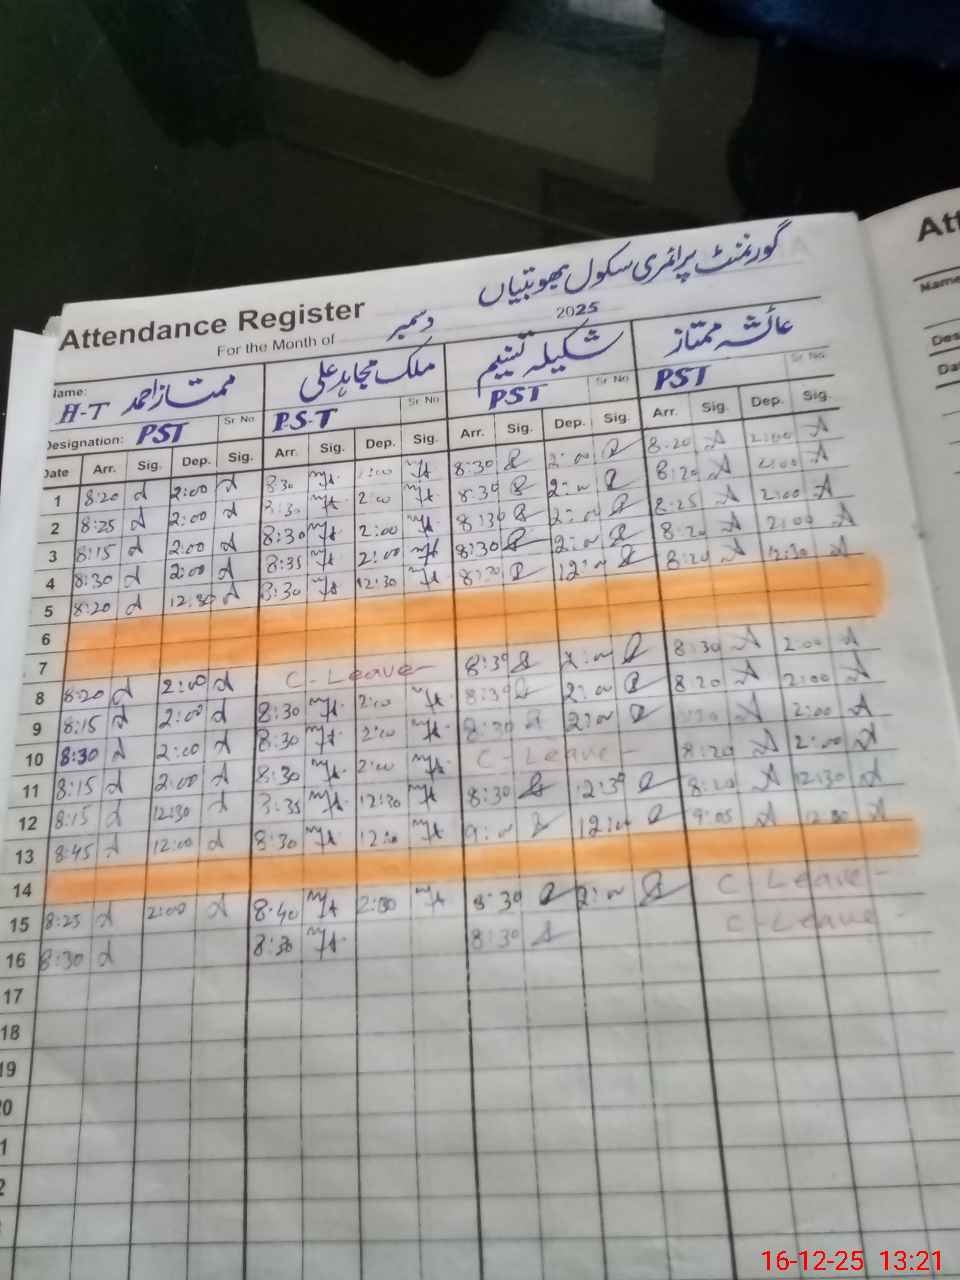 گورنمنٹ پرائمری سکول بھوبتیاں
Attendance Register
For the Month of دسمبر 2025
Name: H-T ممتاز احمد ملک مجاہد علی شکیلہ تسنیم عائشہ ممتاز
Designation: PST Sr No P.S.T Sr No PST Sr No PST Sr No
Date Arr. Sig. Dep. Sig. Arr. Sig. Dep. Sig. Arr. Sig. Dep. Sig. Arr. Sig. Dep. Sig.
1 8:20 2:00 8:30 8:30 8:20 2:00
2 8:25 2:00 2:00 8:30 8:20 2:00
3 8:15 2:00 8:30 2:00 8:30 8:25 2:00
4 8:30 2:00 8:35 2:00 8:30 8:20 2:00
5 8:20 12:30 8:30 12:30 8:20 12:30
6
7
8 8:20 2:00 C-Leave- 8:30 8:30 2:00
9 8:15 2:00 8:30 2:00 8:30 8:20 2:00
10 8:30 2:00 8:30 2:00 8:30 2:00
11 8:15 2:00 8:30 2:00 C-Leave- 8:20 2:00
12 8:15 12:30 8:35 12:30 8:30 12:30 8:20 12:30
13 8:45 12:00 8:30 9:05
14
15 8:25 2:00 8:40 2:00 8:30 C-Leave-
16 8:30 8:30 8:30 C-Leave-
17
18
19
20
Att
Name
Des
Da
16-12-25 13:21